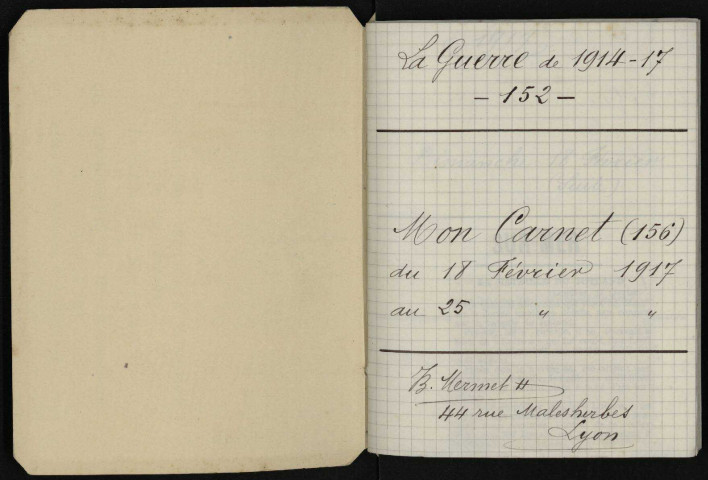 La Guerre de 1914-17
- 152 -
Mon Carnet (156)
du 18 Février 1917
au 25 " "
B. Mermet
44 rue Malesherbes
Lyon